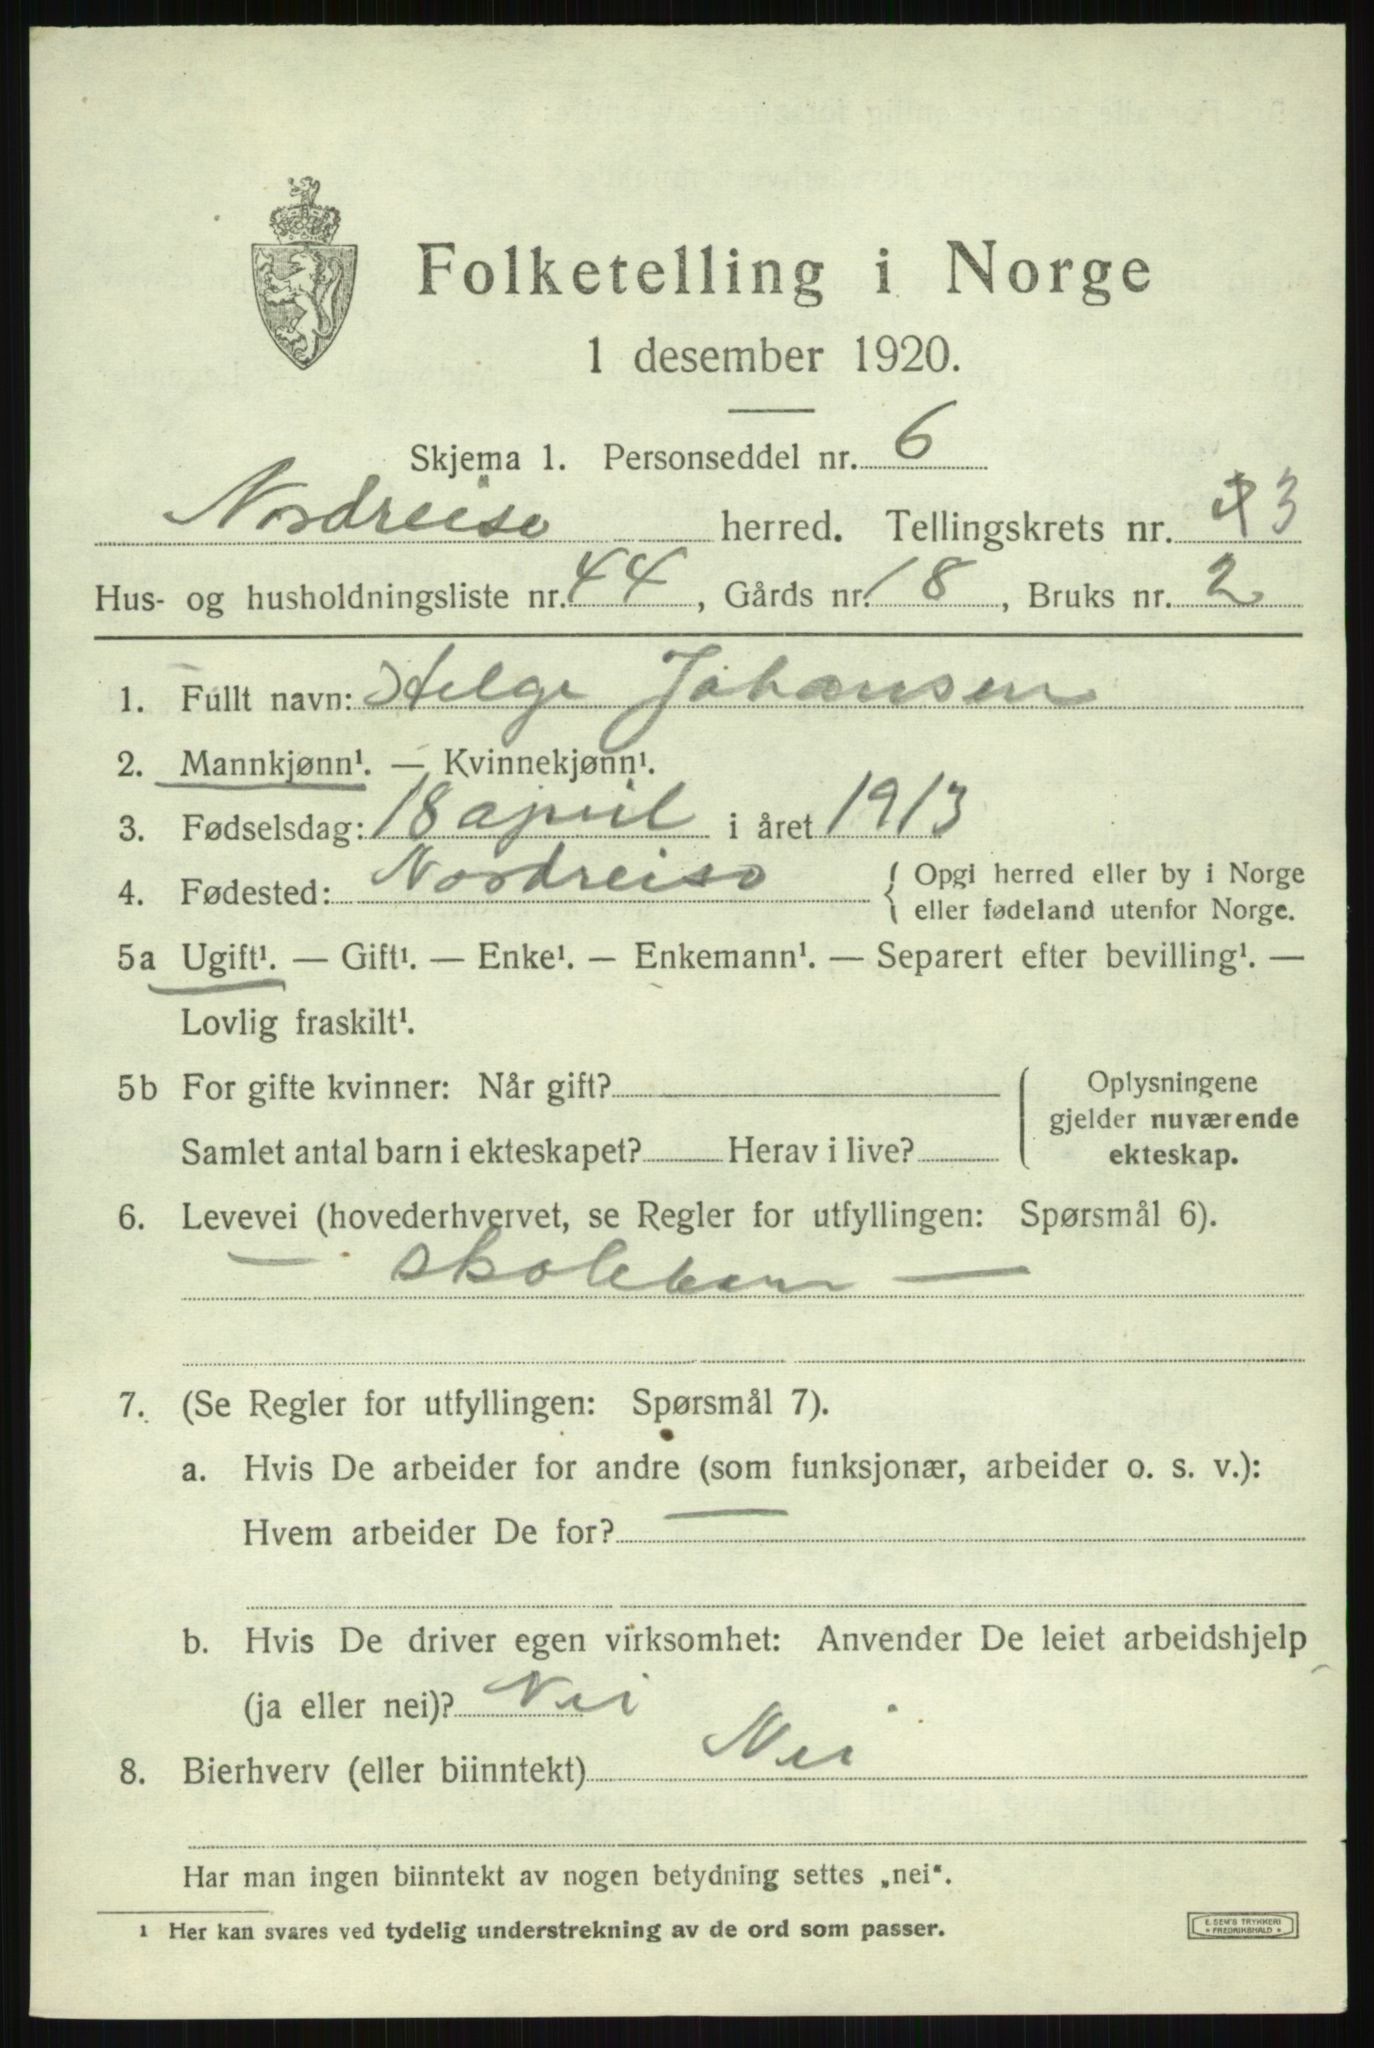 Folketelling i Norge
1 desember 1920.
Skjema 1. Personseddel nr. 6
Nordreisa herred. Tellingskrets nr. 3
Hus- og husholdningsliste nr. 44, Gårds nr. 18, Bruks nr. 2
1. Fullt navn: Helge Johansen
2. Mannkjønn¹. — Kvinnekjønn¹.
3. Fødselsdag: 18 april i året 1913
4. Fødested: Nordreisa { Opgi herred eller by i Norge
eller fødeland utenfor Norge.
5a Ugift¹. — Gift¹. — Enke¹. — Enkemann¹. — Separert efter bevilling¹. —
Lovlig fraskilt¹.
5b For gifte kvinner: Når gift? ( Oplysningene
gjelder nuværende
Samlet antal barn i ekteskapet? Herav i live? ekteskap.
6. Levevei (hovederhvervet, se Regler for utfyllingen: Spørsmål 6).
— skolebarn —
7. (Se Regler for utfyllingen: Spørsmål 7).
a. Hvis De arbeider for andre (som funksjonær, arbeider o. s. v.):
Hvem arbeider De for? —
b. Hvis De driver egen virksomhet: Anvender De leiet arbeidshjelp
(ja eller nei)? Nei
8. Bierhverv (eller biinntekt) Nei
Har man ingen biinntekt av nogen betydning settes „nei“.
¹ Her kan svares ved tydelig understrekning av de ord som passer.
E. SEM'S TRYKKERI
* FREDRIKSHALD *